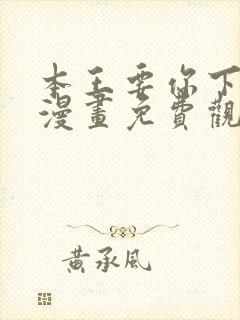 本王要你下
漫畫免費觀
黃承風